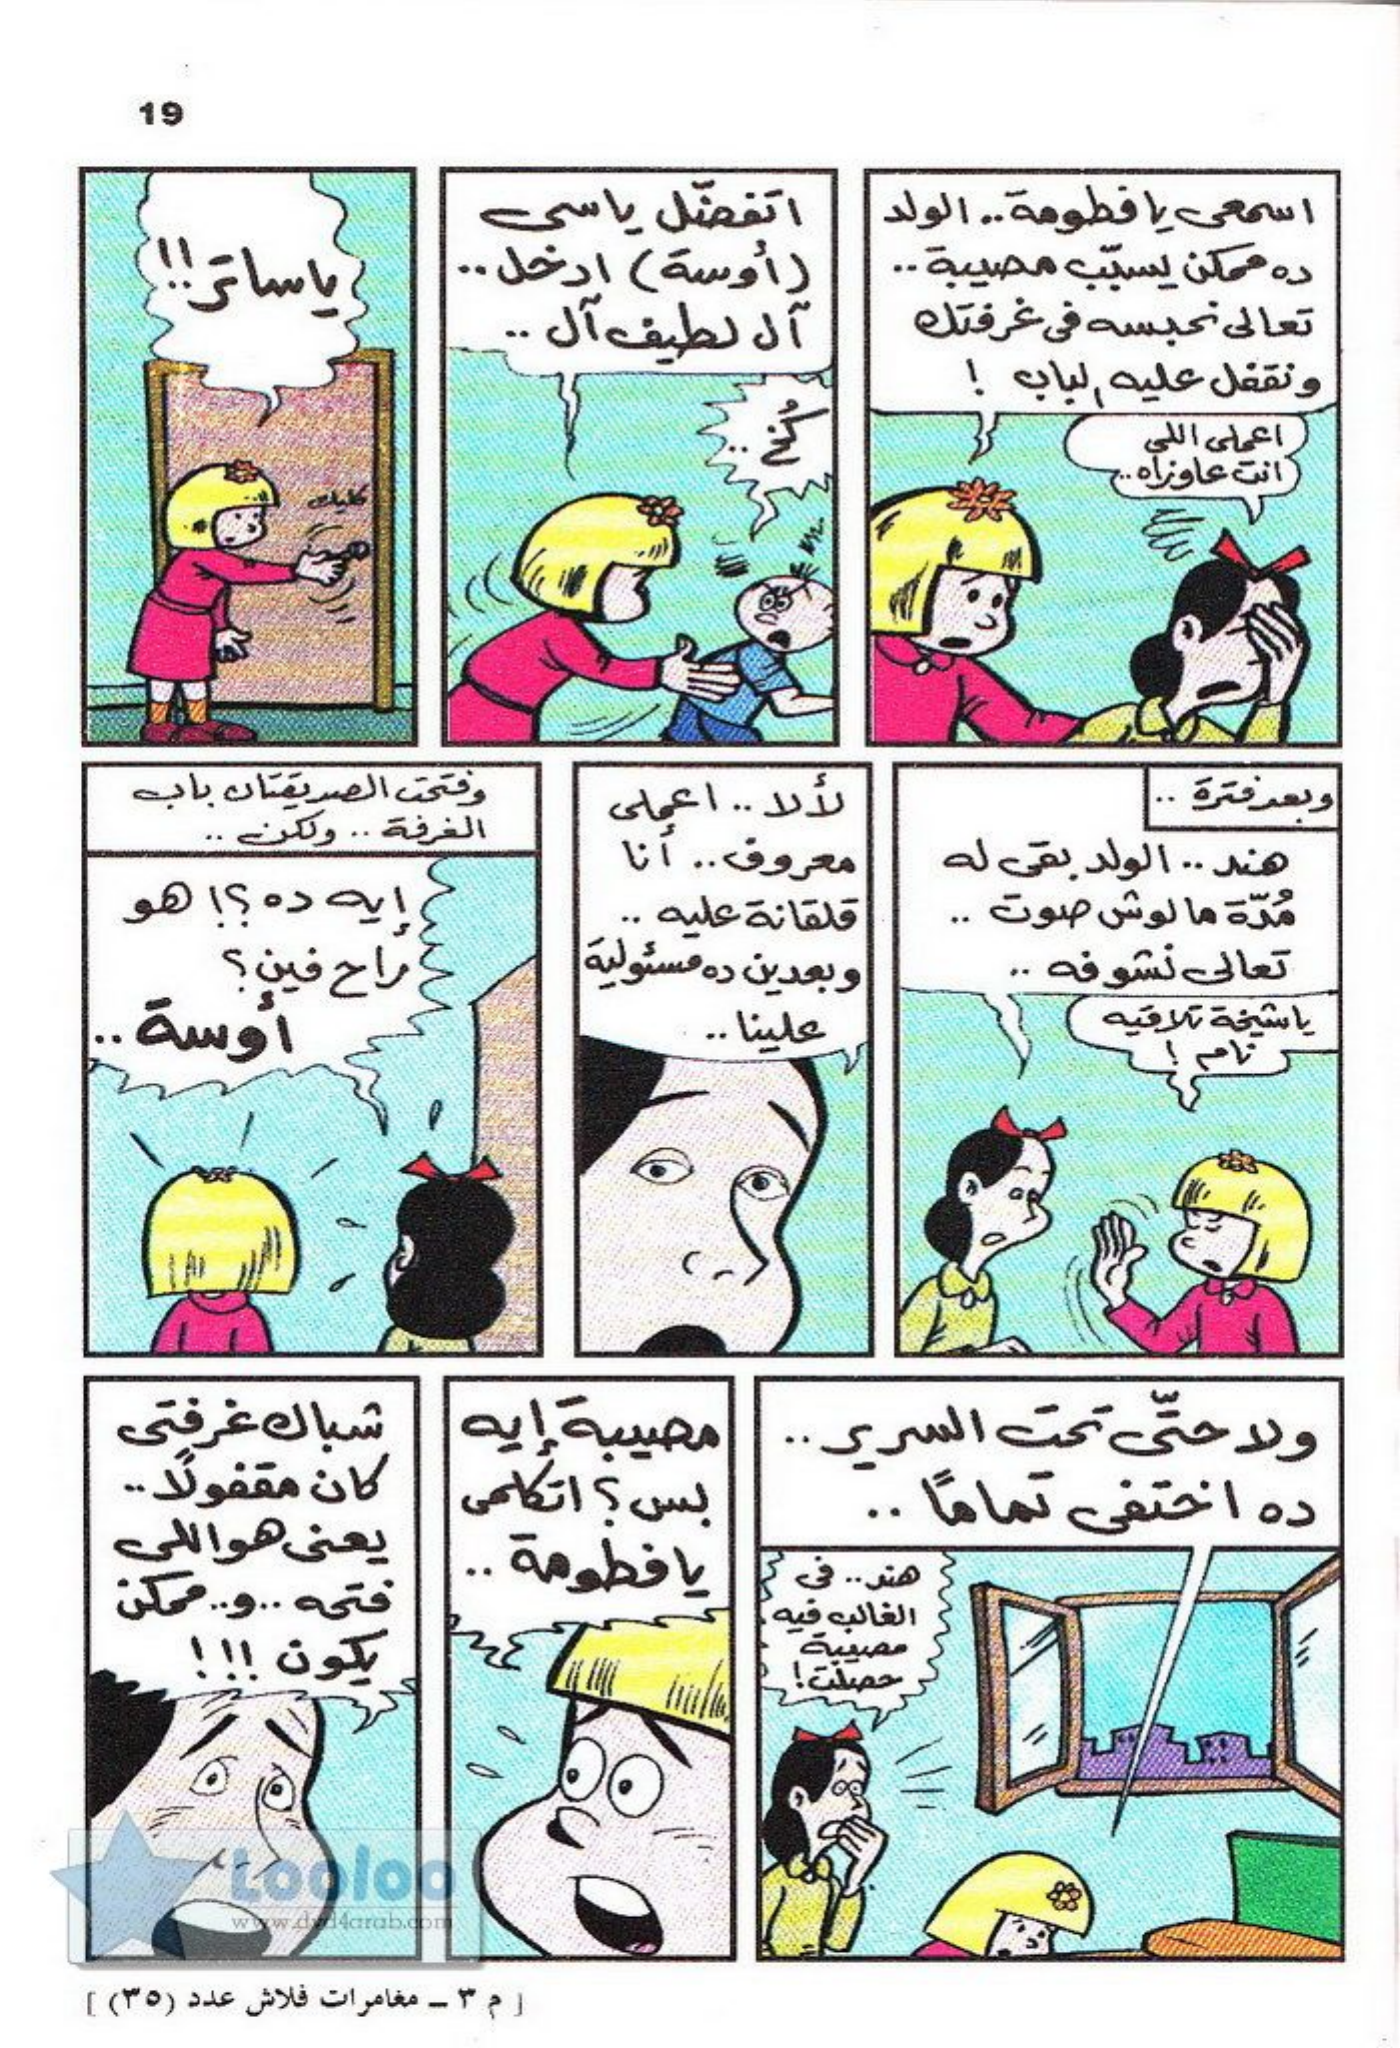 19
اسمعى يا فطومة.. الولد
ده ممكن يسبّب مصيبة..
تعالى نحبسه فى غرفتك
ونقفل عليه الباب !
اعملى اللى
انت عاوزاه..
اتفضّل يا سى
(أوسة) ادخل..
آل لطيف آل ..
كُخ ..
ياساتر!!
كليك
وبعد فترة ..
هند.. الولد بقى له
مُدّة مالوش صوت ..
تعالى نشوفه ..
ياشيخة تلاقيه
نام !
لألا .. اعملى
معروف.. أنا
قلقانة عليه ..
وبعدين ده مسئولية
علينا ..
وفتحت الصديقتان باب
الغرفة .. ولكن ..
إيه ده ؟! هو
راح فين؟
أوسة ..
ولا حتّى تحت السرير ..
ده اختفى تمامًا ..
هند.. فى
الغالب فيه
مصيبة
حصلت!
مصيبة إيه
بس؟ اتكلمى
يا فطومة ..
شباك غرفتى
كان مقفولًا..
يعنى هو اللى
فتحه ..و.. ممكن
يكون !!!
Looloo
www.dvd4arab.com
[ م ٣ ـ مغامرات فلاش عدد (٣٥) ]